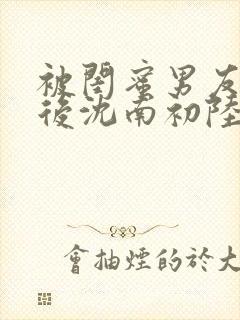 被閨蜜男友
後沈南初陸
會抽煙的於大